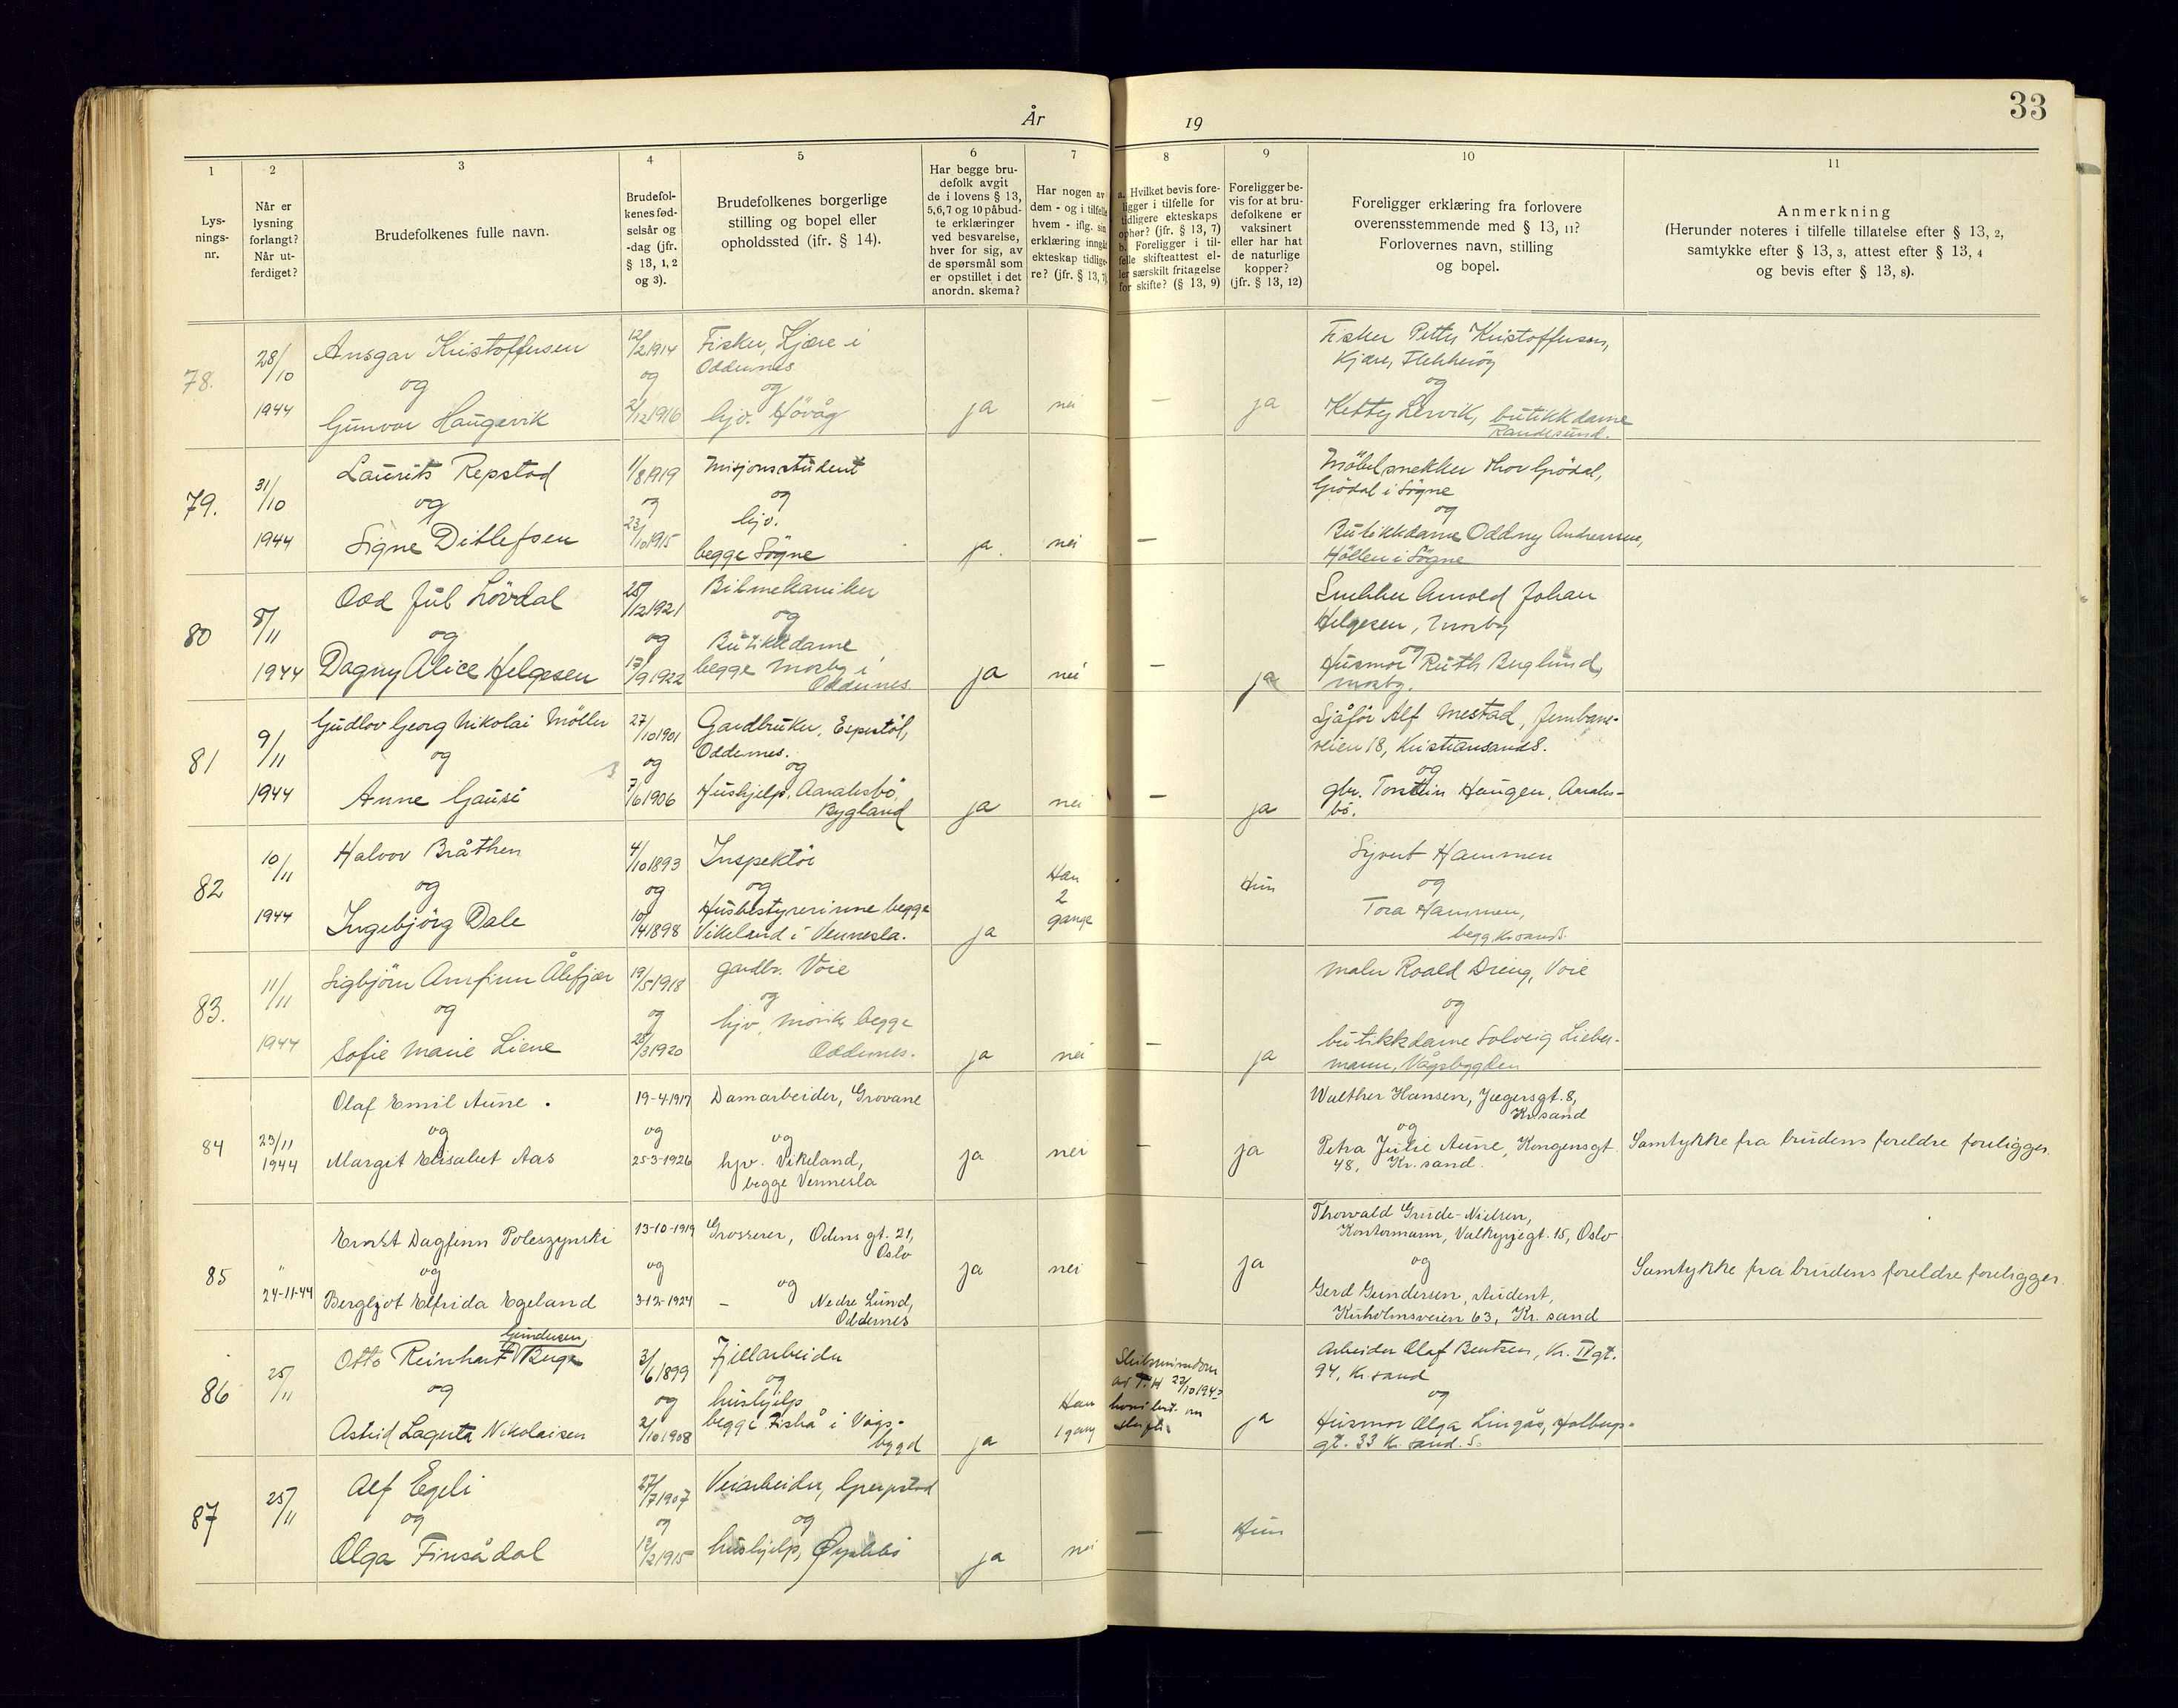 År 19
33
1
Lys-
nings-
nr.
2
Når er
lysning
forlangt?
Når ut-
ferdiget?
3
Brudefolkenes fulle navn.
4
Brudefol-
kenes fød-
selsår og
-dag (jfr.
§ 13, 1, 2
og 3).
5
Brudefolkenes borgerlige
stilling og bopel eller
opholdssted (jfr. § 14).
6
Har begge bru-
defolk avgit
de i lovens § 13,
5,6,7 og 10 påbud-
te erklæringer
ved besvarelse,
hver for sig, av
de spørsmål som
er opstillet i det
anordn. skema?
7
Har nogen av
dem - og i tilfelle
hvem - iflg. sin
erklæring inngått
ekteskap tidlige-
re? (jfr. § 13, 7)
8
a. Hvilket bevis fore-
ligger i tilfelle for
tidligere ekteskaps
ophør? (jfr. § 13, 7)
b. Foreligger i til-
felle skifteattest el-
ler særskilt fritagelse
for skifte? (§ 13, 9)
9
Foreligger be-
vis for at bru-
defolkene er
vaksinert
eller har hat
de naturlige
kopper?
(jfr. § 13, 12)
10
Foreligger erklæring fra forlovere
overensstemmende med § 13, 11?
Forlovernes navn, stilling
og bopel.
11
Anmerkning
(Herunder noteres i tilfelle tillatelse efter § 13, 2,
samtykke efter § 13, 3, attest efter § 13, 4
og bevis efter § 13, 8).
78.
28/10
1944
Ansgar Kristoffersen
og
Gunvor Haugevik
12/2 1914
og
2/12 1916
Fisker, Kjære i
Oddernes
og
hjv. Hövåg
ja
nei
—
ja
Fisker Petter Kristoffersen,
Kjære, Flekkeröy
og
Ketty Lervik, butikkdame
Randesund.
79.
31/10
1944
Laurits Repstad
og
Signe Ditlefsen
1/8 1919
og
23/10 1915
Misjonsstudent
og
hjv.
begge Sögne
ja.
nei
—
Möbelsnekker Thor Grödal,
Grödal i Sögne
og
Butikkdame Oddny Andreassen,
Höllen i Sögne
80
8/11
1944
Odd Jul Lövdal
og
Dagny Alice Helgesen
25/12 1921
og
17/9 1922
Bilmekaniker
og
Butikkdame
begge Mosby i
Oddernes.
ja
nei
—
ja
Snekker Arnold Johan
Helgesen, Mosby
og
Husmor Ruth Berglund,
Mosby.
81
9/11
1944
Gudlov Georg Nikolai Möller
og
Anne Gausi
27/10 1901
og
7/6 1906
Gardbruker, Esperstöl,
Oddernes.
og
Hushjelp, Aaraksbö,
Bygland
ja
nei
—
ja
Sjåför Alf Mestad, Jernbane-
veien 18, Kristiansand S.
og
gbr. Torstein Haugen, Aaraks-
bö.
82
10/11
1944
Halvor Bråthen
og
Ingebjörg Dale
4/10 1893
og
10/4 1898
Inspektör
og
Husbestyrerinne begge
Vikeland i Vennesla.
ja
Han
2
gange
—
Hun
Syvert Hammen
og
Tora Hammen,
begg. Kr.sand S.
83.
11/11
1944
Sigbjörn Arnfinn Ålefjær
og
Sofie Marie Liene
19/5 1918
og
28/3 1920
gardbr. Voie
og
hjv, Mörik begge
Oddernes.
ja
nei
—
ja
Maler Roald Dreng, Voie
og
butikkdame Solveig Lieber-
mann, Vågsbygden
84
23/11
1944
Olaf Emil Aune.
og
Margit Elisabet Aas
19-4-1917
og
25-3-1926
Damarbeider, Grovane
og
hjv. Vikeland,
begge Vennesla
ja
nei
—
ja
Walther Hansen, Jægersgt. 8,
Kr.sand
og
Petra Julie Aune, Kongensgt.
48, Kr. sand.
Samtykke fra brudens foreldre foreligger.
85
24-11-44
Ernst Dagfinn Poleszynski
og
Bergljot Elfrida Egeland
13-10-1919
og
3-12-1924
Grosserer, Odins gt. 21,
Oslo
og
— Nedre Lund,
Oddernes
ja
nei
—
ja
Thorvald Grude-Nielsen,
Kontormann, Valkyrjegt. 15, Oslo
og
Gerd Gundersen, student,
Kuholmsveien 63, Kr. sand
Samtykke fra brudens foreldre foreligger.
86
25/11
Gundersen,
Otto Reinhart Berge
og
Astrid Lagerta Nikolaisen
3/6 1899
og
2/10 1908
Fjellarbeider
og
hushjelp
begge Fiskå i Vågs-
bygd
ja
Han
1 gang
ja
Arbeider Olaf Bentsen, Kr. IV gt.
94, Kr. sand
og
Husmor Olga Lingås, Holbergs-
gt. 33 Kr. sand. S.
87
25/11
Alf Egeli
og
Olga Finsådal
27/7 1907
og
12/2 1915
Veiarbeider, Greipstad
og
hushjelp, Öyslebö
ja
nei
—
Hun